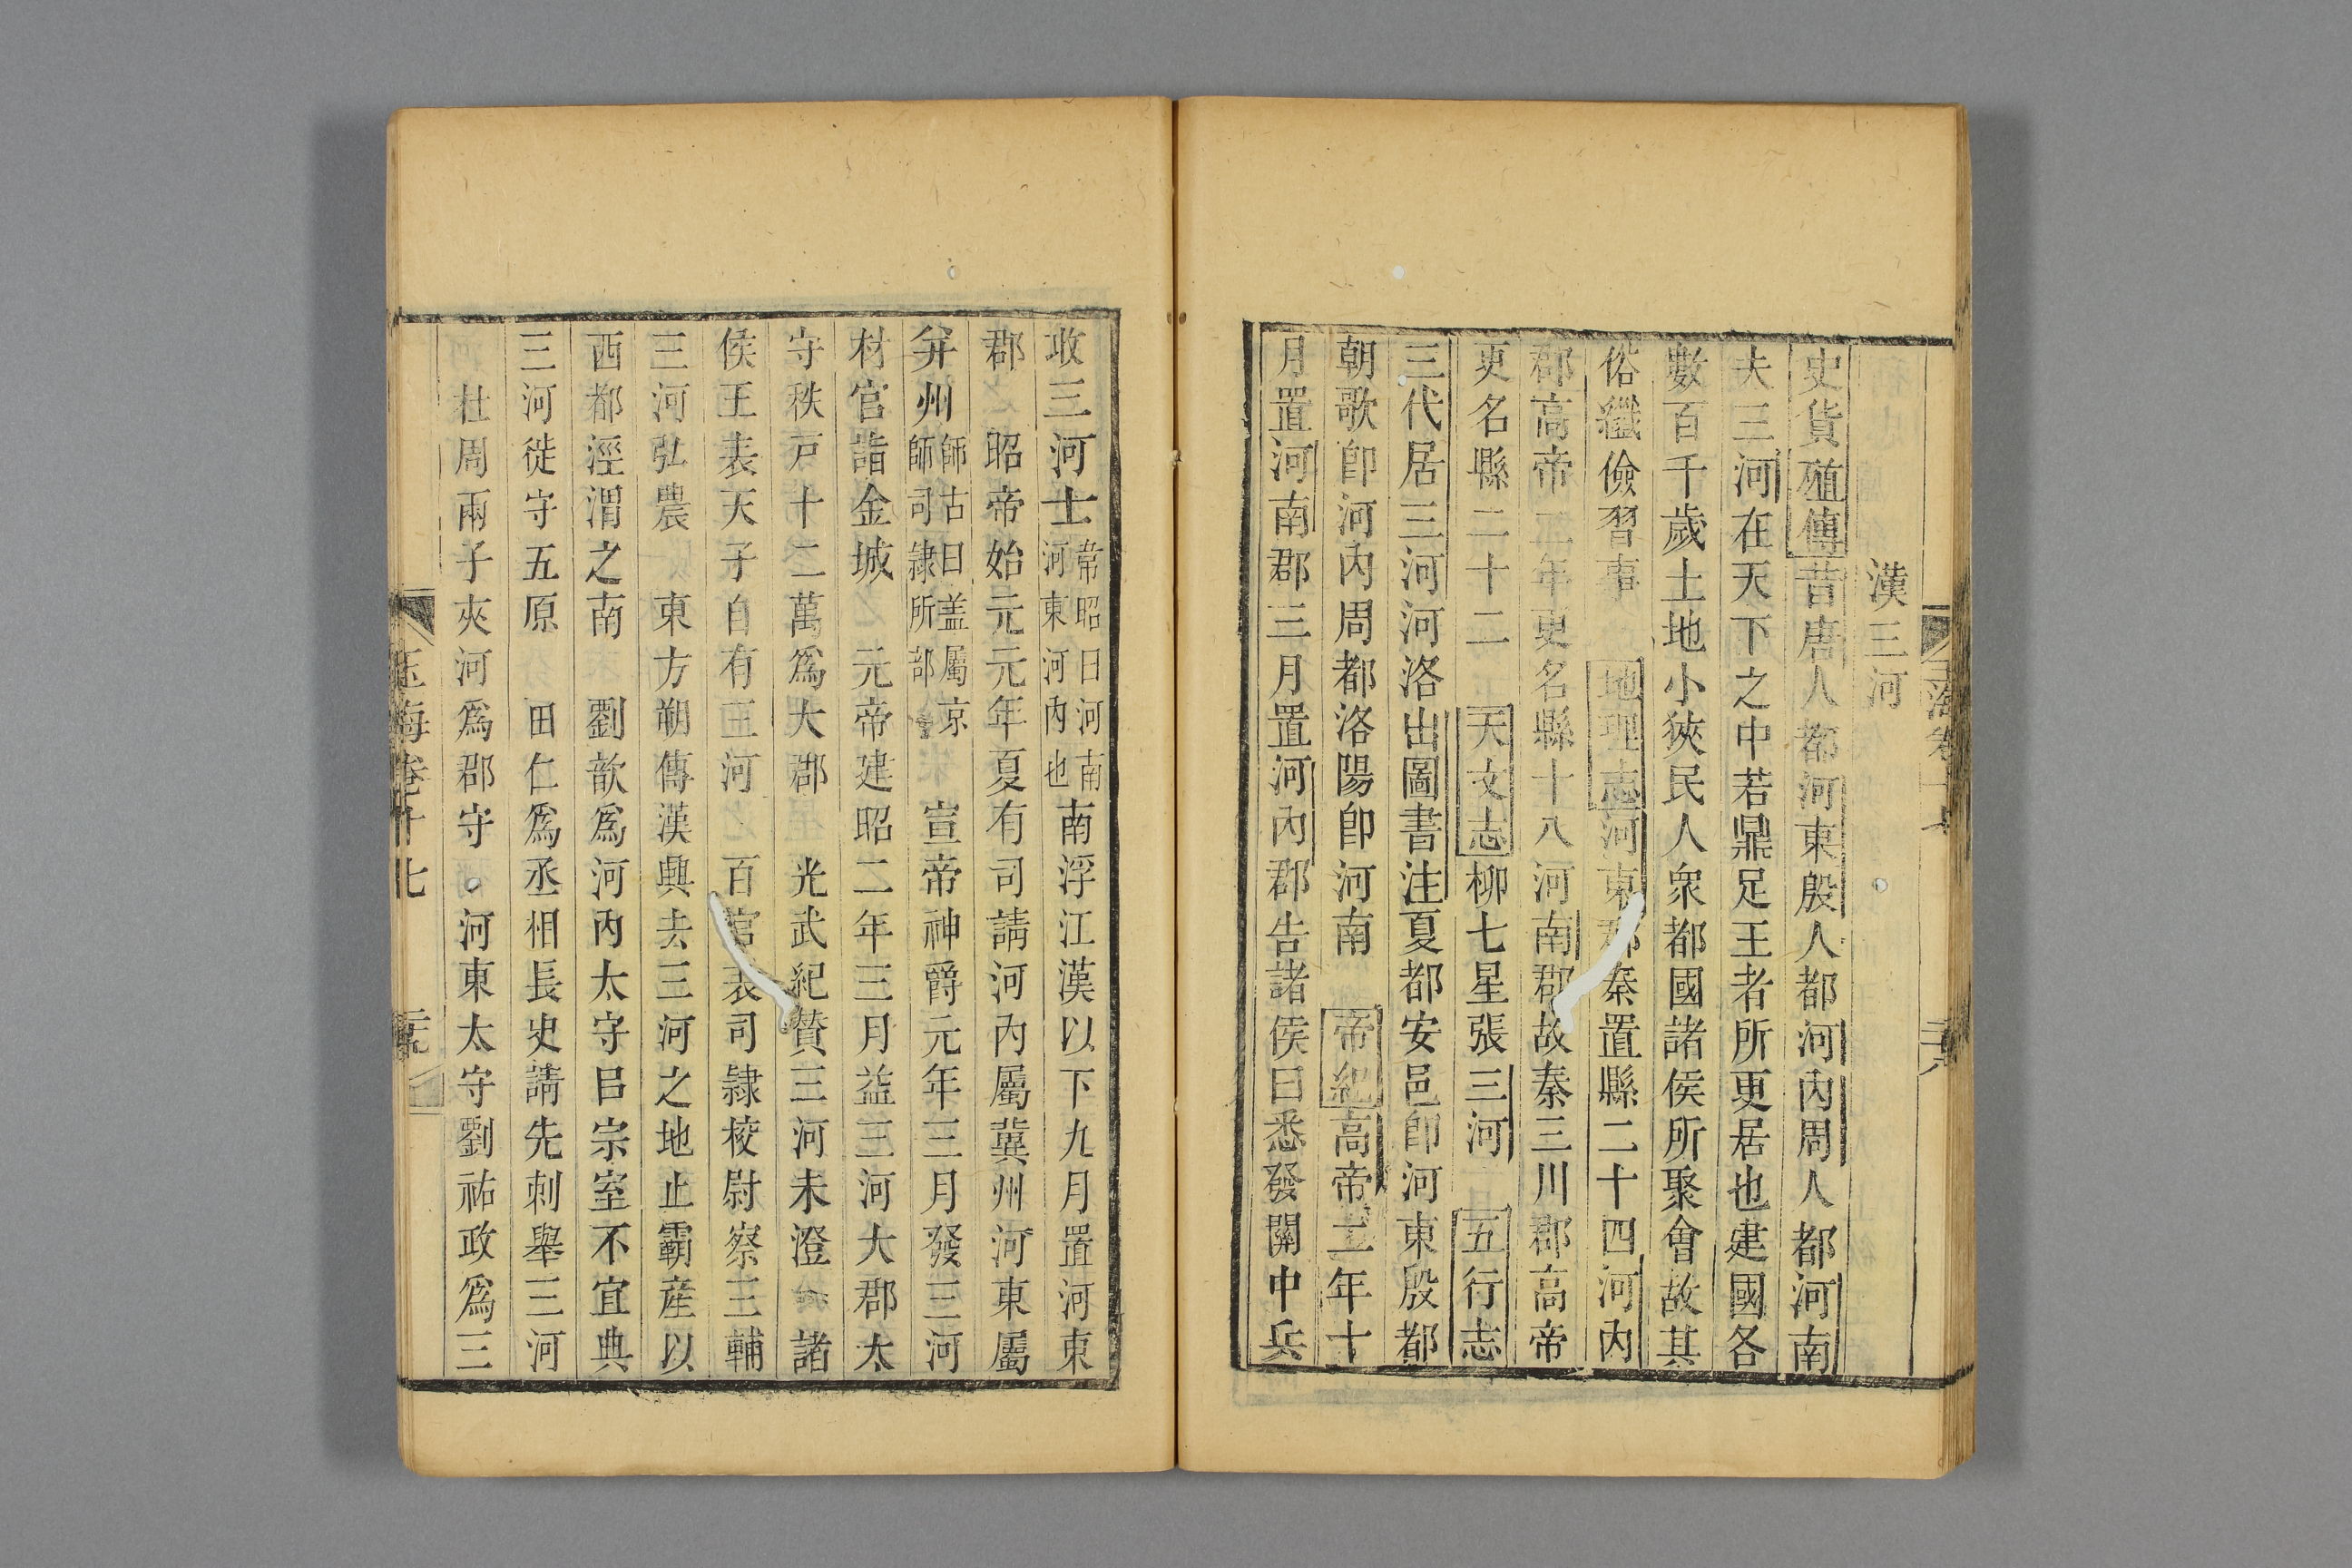 漢三河
史貨殖傳昔唐人都河東殷人都河內周人都河南
夫三河在天下之中若鼎足王者所更居也建國各
數百千歲土地小狹民人衆都國諸侯所聚會故其
俗纖儉習事 地理志河東郡秦置縣二十四河內
郡高帝二年更名縣十八河南郡故秦三川郡高帝
更名縣二十二 天文志柳七星張三河 五行志
三代居三河河洛出圖書注夏都安邑卽河東殷都
朝歌卽河內周都洛陽卽河南 帝紀高帝二年十
月置河南郡三月置河內郡告諸侯曰悉發關中兵
收三河士韋昭曰河南河東河內也南浮江漢以下九月置河東
郡 昭帝始元元年夏有司請河內屬冀州河東屬
幷州師古曰蓋屬京師司隸所部 宣帝神爵元年三月發三河
材官詣金城 元帝建昭二年三月益三河大郡太
守秩戶十二萬爲大郡 光武紀贊三河未澄 諸
侯王表天子自有三河 百官表司隸校尉察三輔
三河弘農 東方朔傳漢興去三河之地止霸產以
西都涇渭之南 劉歆爲河內太守㠯宗室不宜典
三河徙守五原 田仁爲丞相長史請先刺舉三河
杜周兩子夾河爲郡守 河東太守劉祐政爲三
玉海卷十七